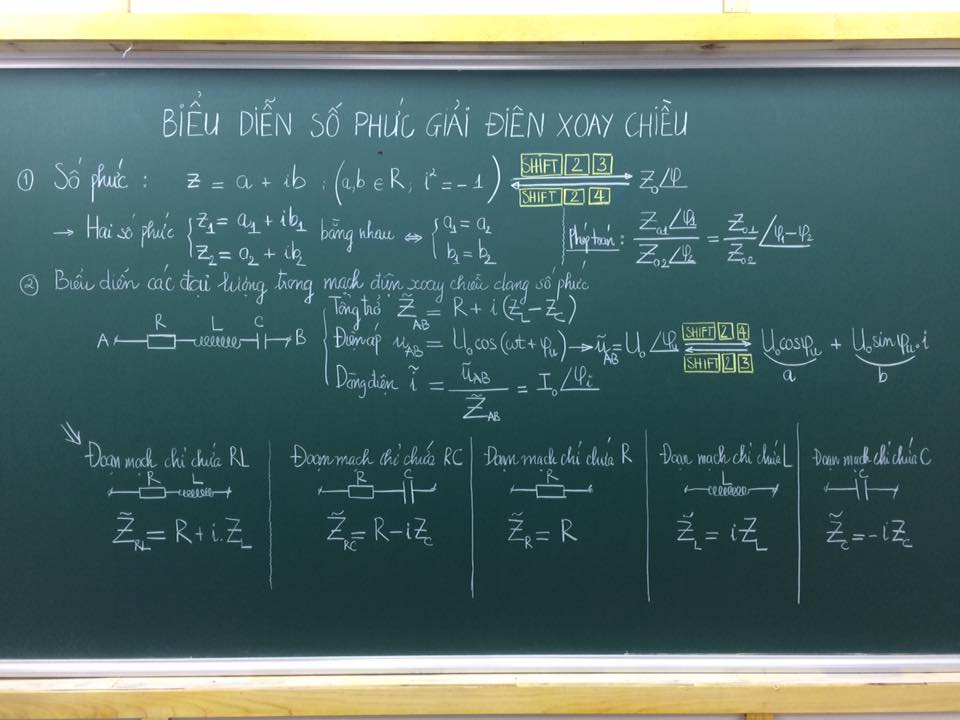 BIỂU DIỄN SỐ PHỨC GIẢI ĐIỆN XOAY CHIỀU
① Số phức : z = a + ib ; (a,b ∈ R, i² = -1) SHIFT 2 3 Z₀∠φ
SHIFT 2 4
→ Hai số phức { z₁ = a₁ + ib₁ bằng nhau ⇔ { a₁ = a₂
z₂ = a₂ + ib₂ b₁ = b₂
Phép toán : Z₀₁∠φ₁ / Z₀₂∠φ₂ = Z₀₁ / Z₀₂ ∠φ₁-φ₂
② Biểu diễn các đại lượng trong mạch điện xoay chiều dạng số phức
A R L C B
Tổng trở Z̃_AB = R + i(Z_L - Z_C)
Điện áp u_AB = U₀cos(ωt + φ_u) → ũ_AB = U₀∠φ_u SHIFT 2 4 U₀cosφ_u + U₀sinφ_u.i
SHIFT 2 3 a b
Dòng điện ĩ = ũ_AB / Z̃_AB = I₀∠φ_i
Đoạn mạch chỉ chứa RL
R L
Z̃_RL = R + i.Z_L
Đoạn mạch chỉ chứa RC
R C
Z̃_RC = R - iZ_C
Đoạn mạch chỉ chứa R
R
Z̃_R = R
Đoạn mạch chỉ chứa L
L
Z̃_L = iZ_L
Đoạn mạch chỉ chứa C
C
Z̃_C = -iZ_C